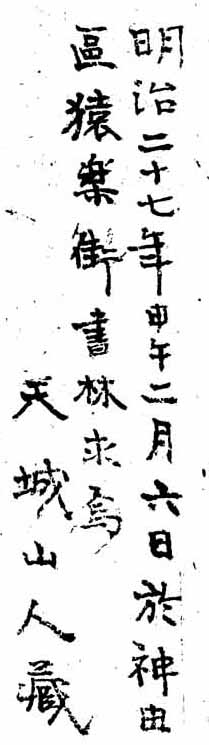 明治二十七年甲午二月六日於神田
區猿楽街書林求焉
天城山人藏